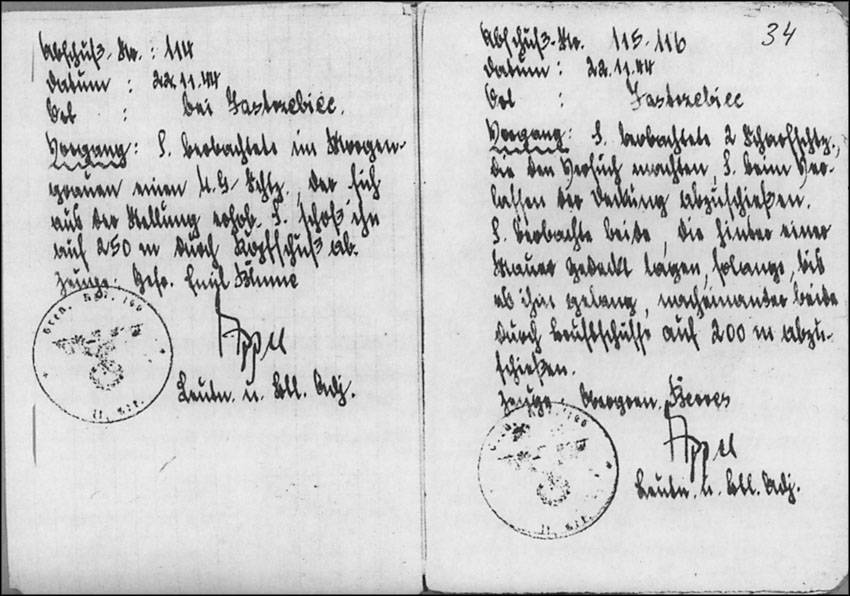 Abschuß-Nr. : 114
Datum : 22.11.44
Ort : bei Jastrzebiec.
Vorgang: S. beobachtete im Morgen-
grauen einen M.G-Schtz., der sich
aus der Stellung erhob. S. schoß ihn
auf 250 m durch Kopfschuß ab.
Zeuge Gefr. Emil Blume
Appel
Leutn. u. Btl. Adj.
34
Abschuß-Nr. 115-116
Datum : 22.11.44
Ort : Jastrzebiec
Vorgang: S. beobachtete 2 Scharfschtz.,
die den Versuch machten, S. beim Ver-
lassen der Deckung abzuschießen.
S. beobachte beide, die hinter einer
Mauer gedeckt lagen, solange, bis
es ihm gelang, nacheinander beide
durch Brustschüsse auf 200 m abzu-
schießen.
Zeuge: Obergren.
Appel
Leutn. u. Btl. Adj.